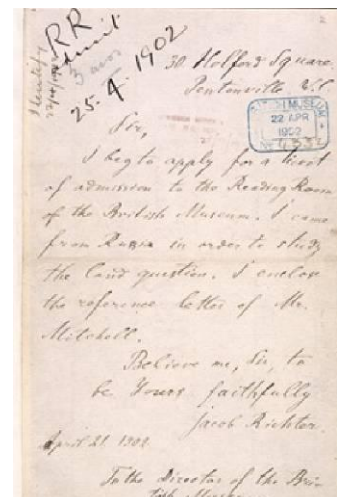 RR
admit
3 mos
25.4.1902
Identify
30 Holford Square
Pentonville, W.C.
BRITISH MUSEUM
22 APR
1902
Sir,
I beg to apply for a ticket
of admission to the Reading Room
of the British Museum. I came
from Russia in order to study
the land question. I enclose
the reference letter of Mr.
Mitchell.
Believe me, Sir, to
be Yours faithfully
Jacob Richter.
April 21. 1902.
To the Director of the Bri-
tish Museum